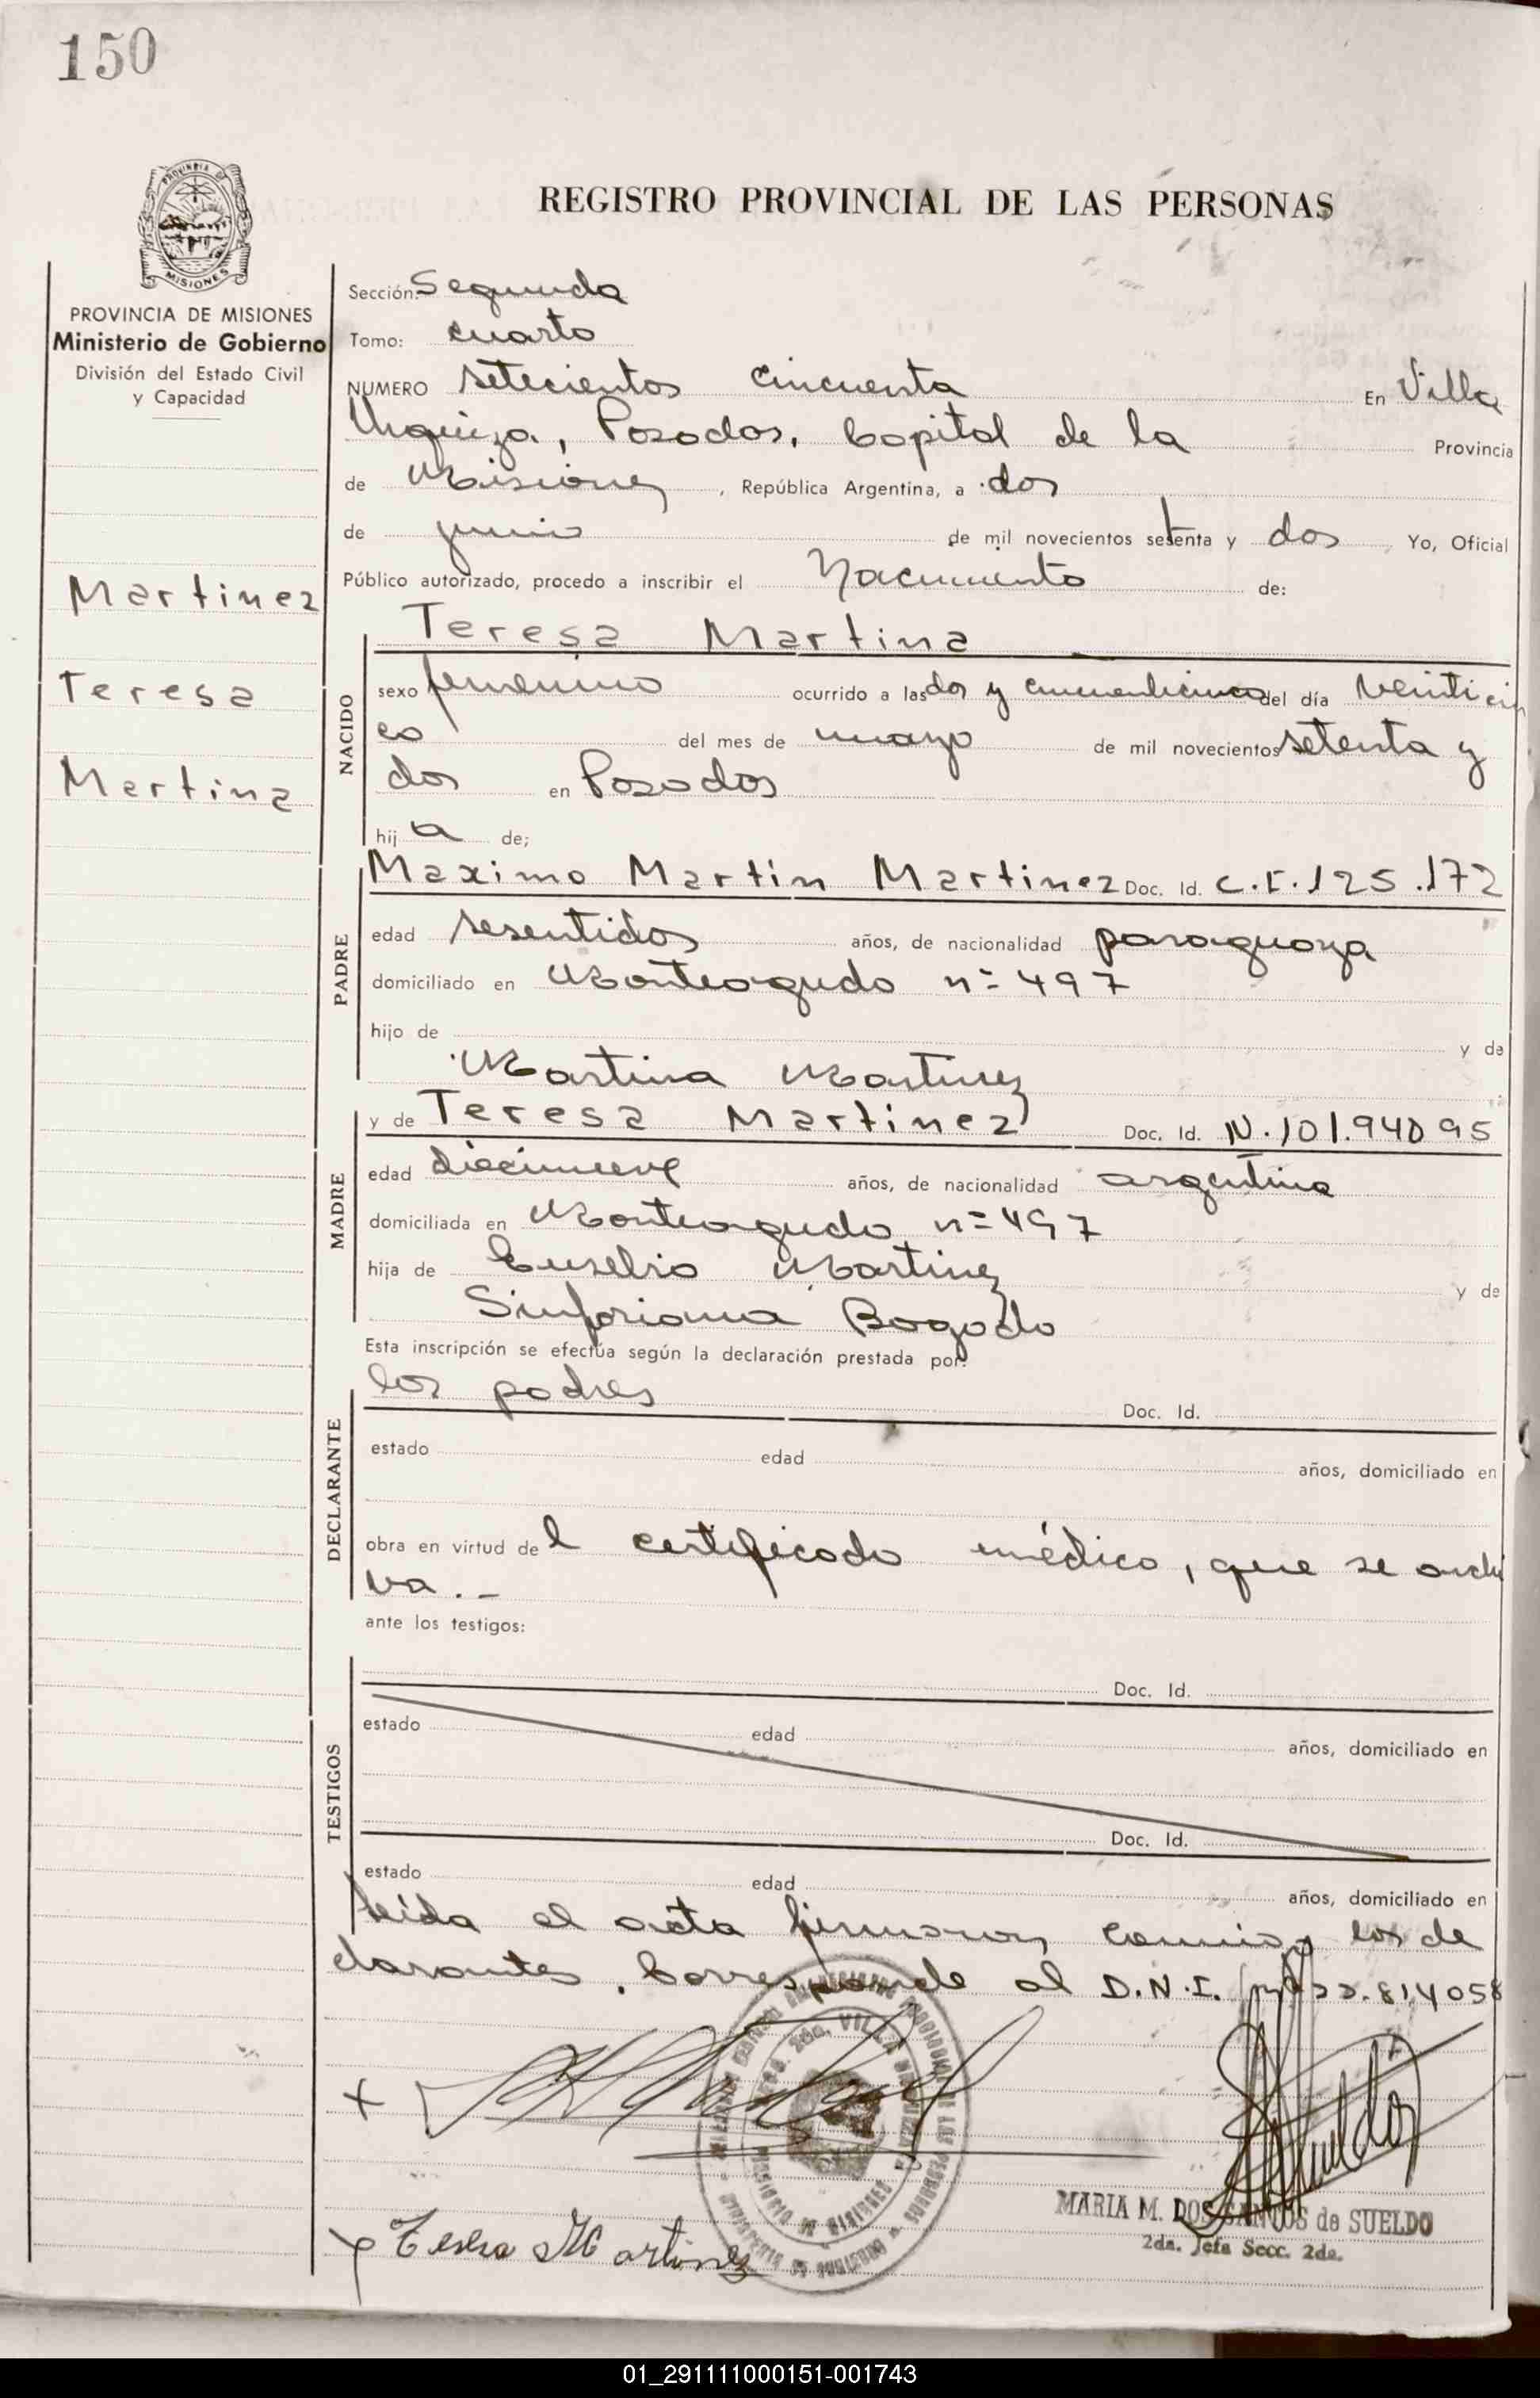 150
PROVINCIA DE
MISIONES
REGISTRO PROVINCIAL DE LAS PERSONAS
PROVINCIA DE MISIONES
Ministerio de Gobierno
División del Estado Civil
y Capacidad
Martinez
Teresa
Martina
Sección: Segunda
Tomo: cuarto
NUMERO setecientos cincuenta En Villa
Urquiza, Posadas, Capital de la Provincia
de Misiones, República Argentina, a dos
de junio de mil novecientos setenta y dos Yo, Oficial
Público autorizado, procedo a inscribir el Nacimiento de:
NACIDO
Teresa Martina
sexo femenino ocurrido a las dos y cincuenticinco del día veinticin
co del mes de mayo de mil novecientos setenta y
dos en Posadas
hij a de;
PADRE
Maximo Martin Martinez Doc. Id. C.I. 125.172
edad sesentidos años, de nacionalidad paraguaya
domiciliado en Monteagudo nº 497
hijo de y de
Martina Martinez
MADRE
y de Teresa Martinez Doc. Id. N. 101.940 95
edad diecinueve años, de nacionalidad argentina
domiciliada en Monteagudo nº 497
hija de Eusebio Martinez y de
Sinforiana Bogado
Esta inscripción se efectúa según la declaración prestada por:
DECLARANTE
los padres Doc. Id.
estado edad años, domiciliado en
obra en virtud de l certificado médico, que se archi
va.-
ante los testigos:
TESTIGOS
Doc. Id.
estado edad años, domiciliado en
Doc. Id.
estado edad años, domiciliado en
Leida el acta firmaron conmigo los de
clarantes. Corresponde al D.N.I. 22.814058
Sueldo
MARIA M. DOS SANTOS de SUELDO
2da. Jefa Secc. 2da.
Teresa Martinez
01_291111000151-001743